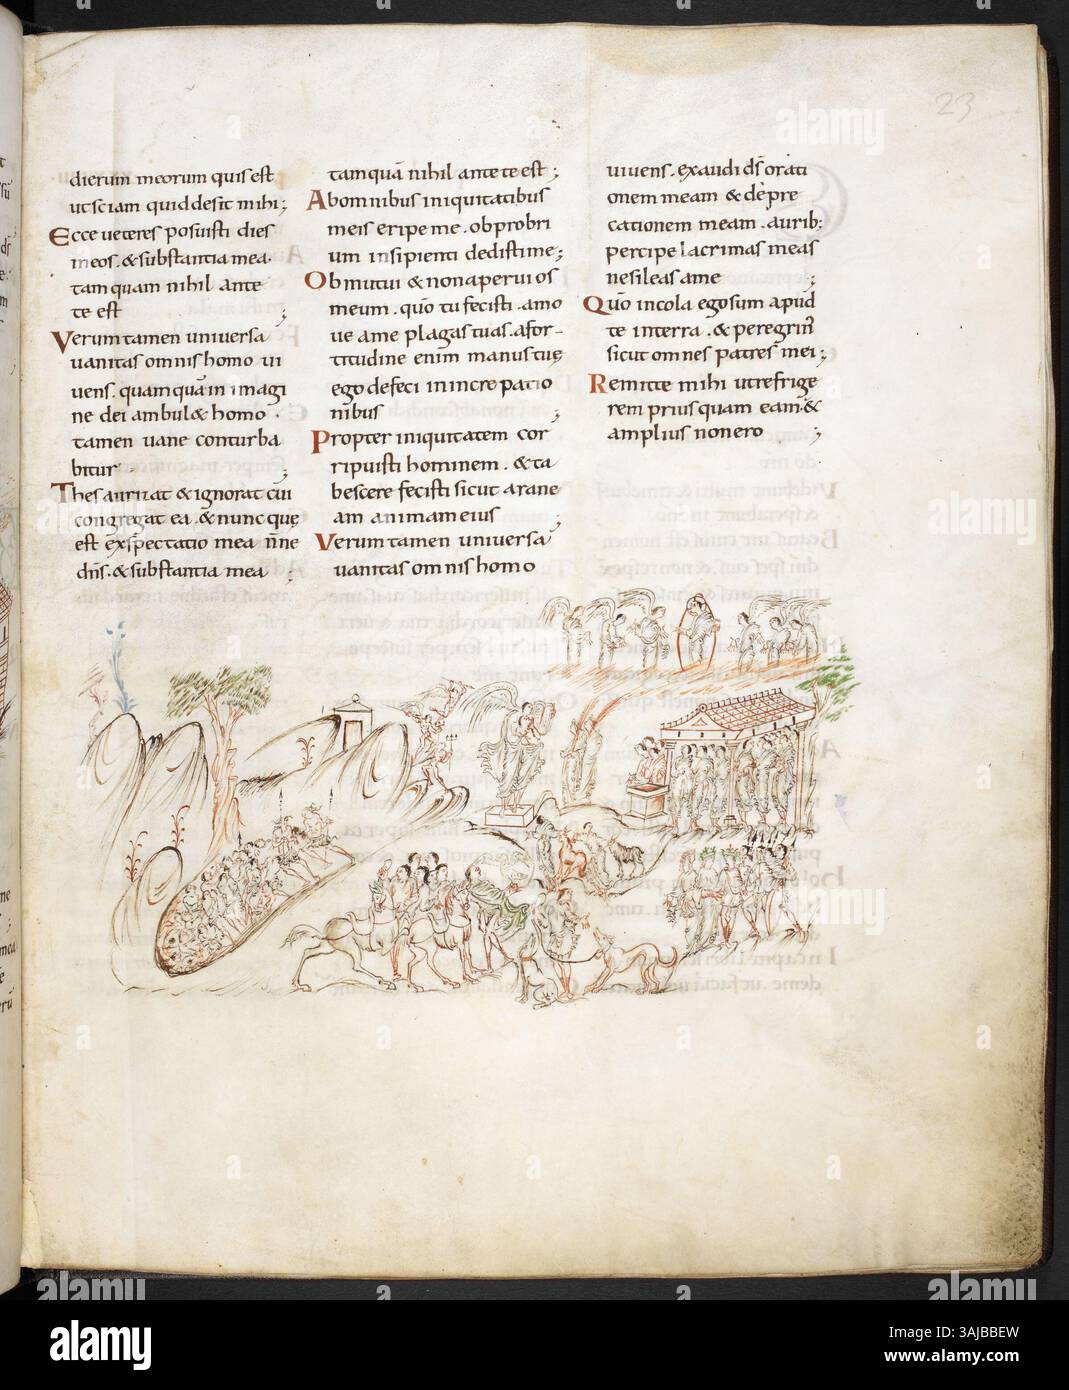 23
dierum meorum quis est
ut sciam quid desit mihi;
Ecce ueteres posuisti dies
meos. & substantia mea
tam quam nihil ante
te est
Verum tamen uniuersa
uanitas omnis homo ui
uens. quam quā in imagi
ne dei ambul& homo.
tamen uane conturba
bitur;
Thesaurizat & ignorat cui
congregat ea. & nunc que
est exspectatio mea nne
dns. & substantia mea;
tam quā nihil ante te est;
Ab omnibus iniquitatibus
meis eripe me. obprobri
um insipienti dedisti me;
Obmutui & non aperui os
meum. qūo tu fecisti. amo
ue a me plagas tuas. a for-
titudine enim manus tuę
ego defeci in increpatio
nibus;
Propter iniquitatem cor
ripuisti hominem. & ta
bescere fecisti sicut arane
am animam eius;
Verum tamen uniuersa
uanitas omnis homo
uiuens. exaudi ds orati
onem meam & depre
cationem meam. aurib:
percipe lacrimas meas
ne sileas a me;
Qūo incola ego sum apud
te in terra. & peregrin
sicut omnes patres mei;
Remitte mihi ut refrige
rem prius quam eam. &
amplius non ero;
alamy
3AJBBEW
www.alamy.com